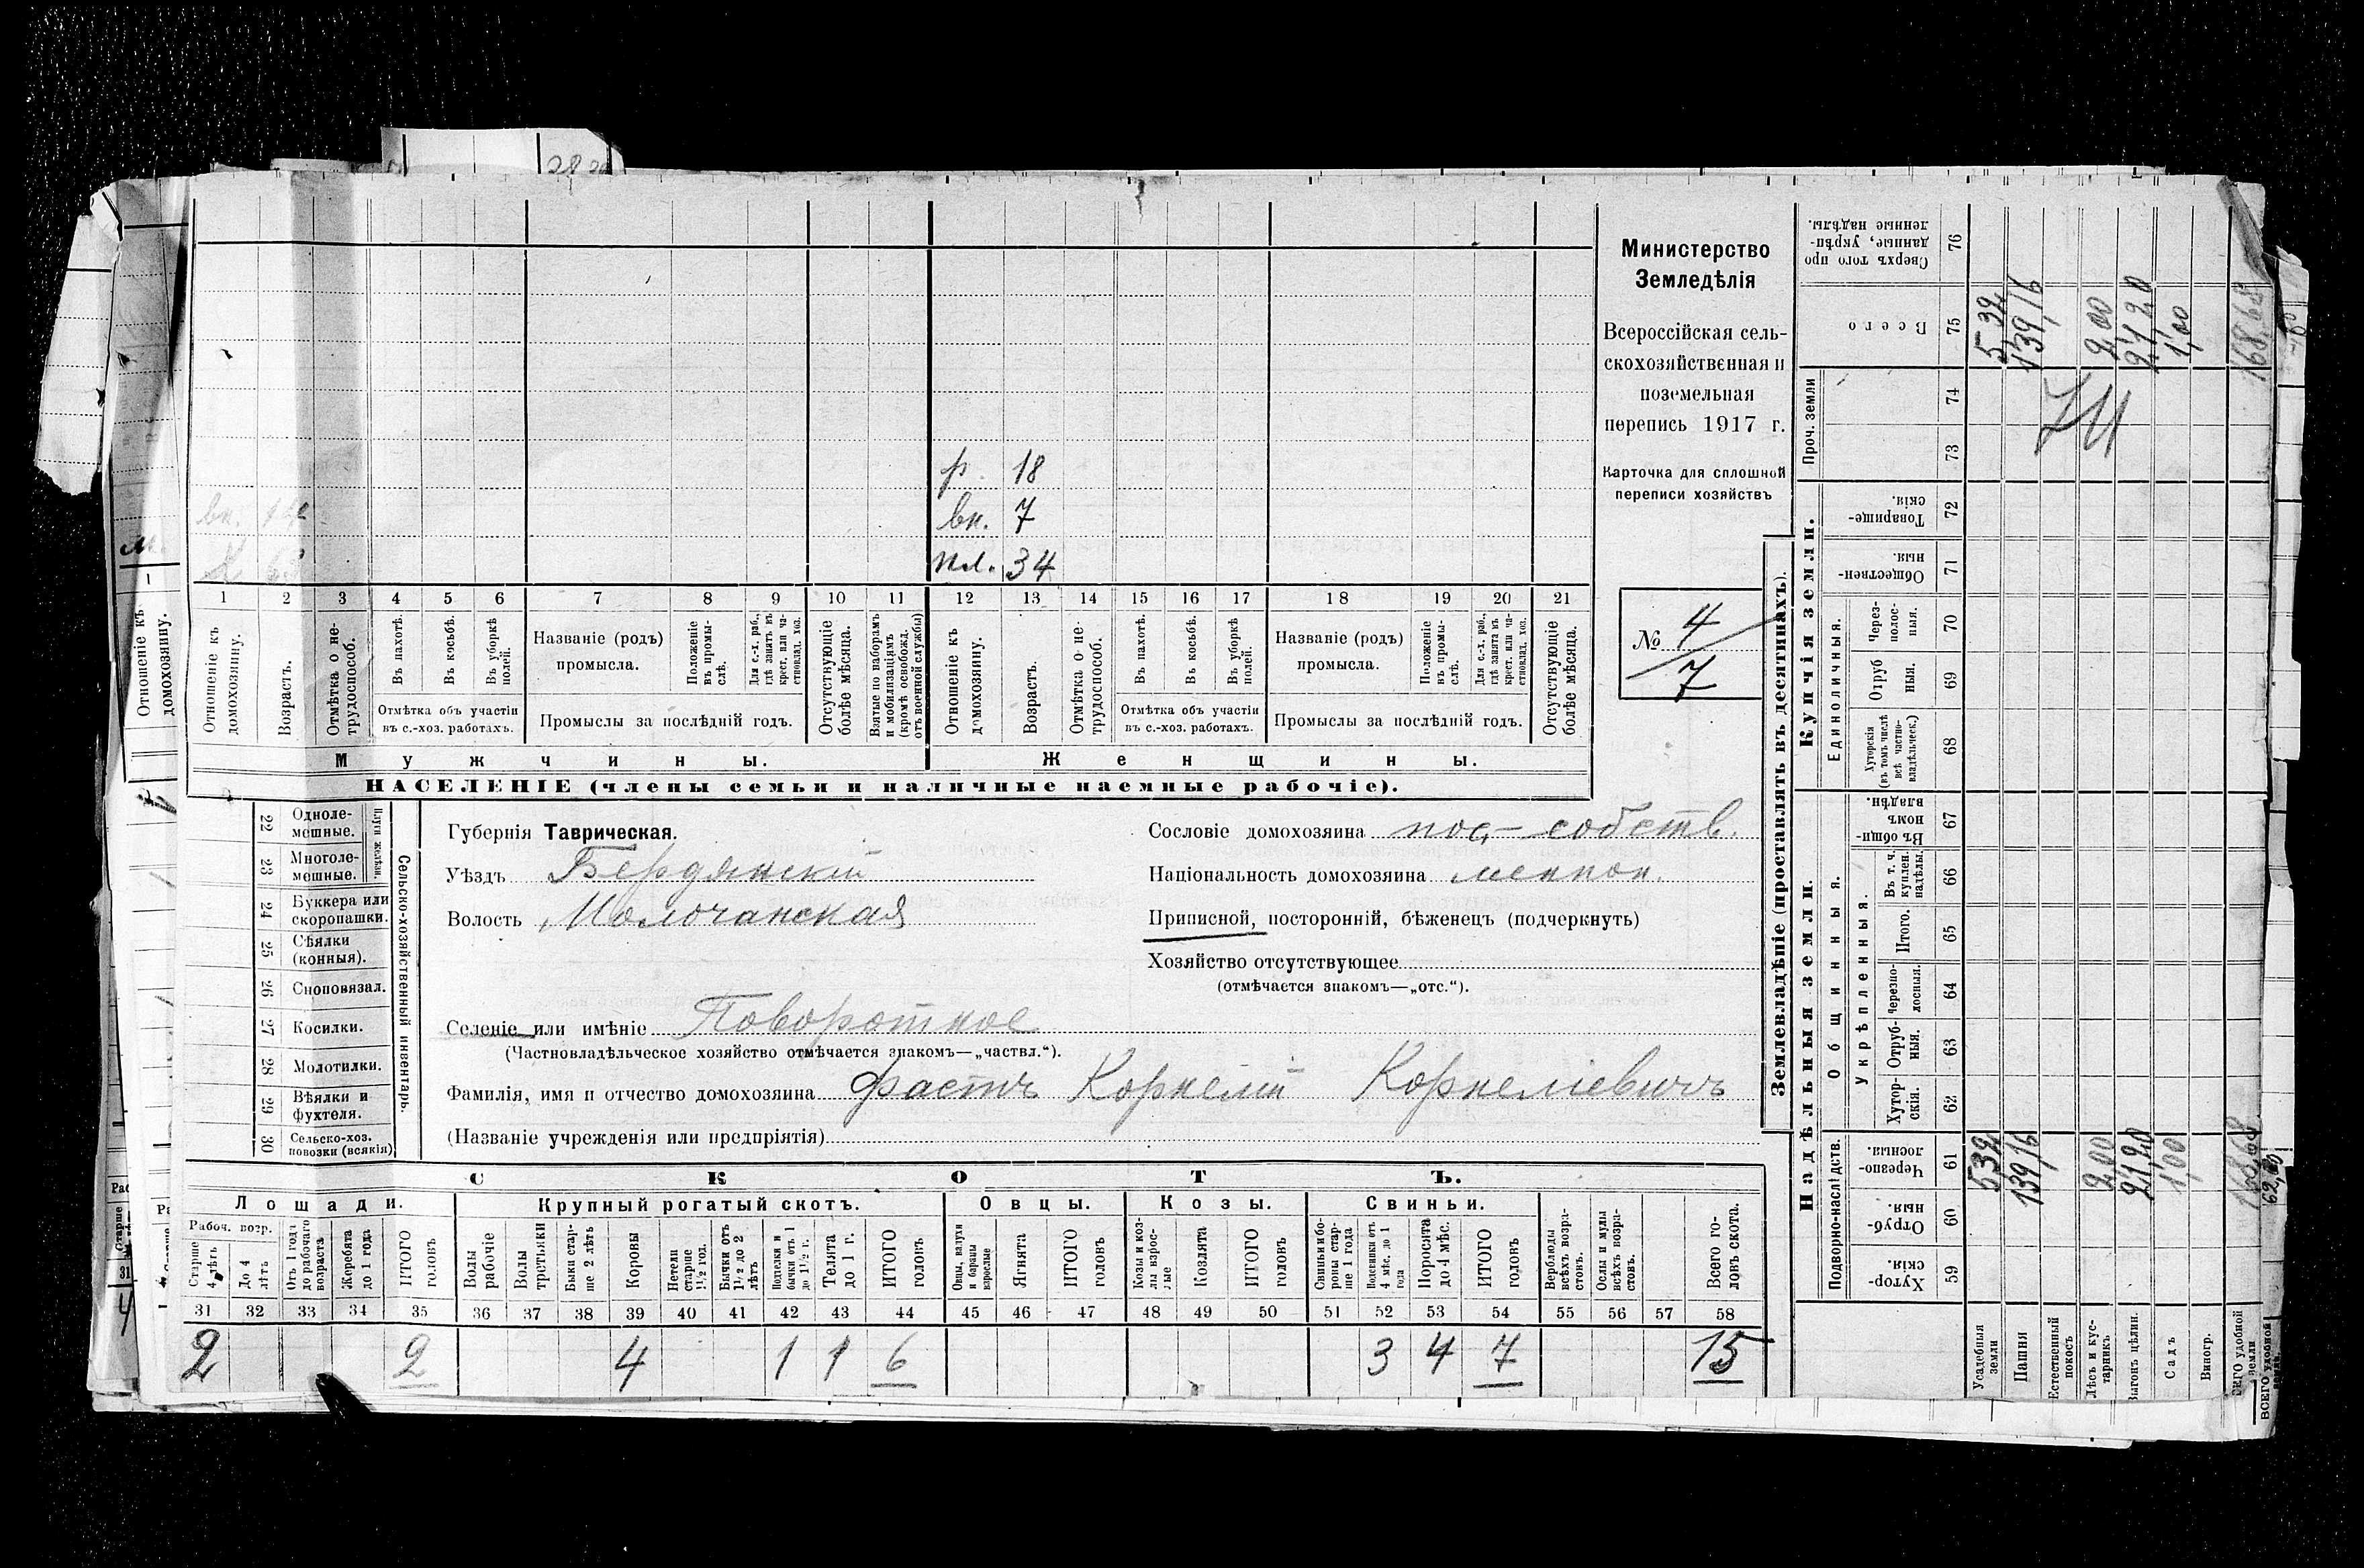 28 29
р. 18
вн. 14 вн. 7
Х 63 пл. 34
1 2 3 4 5 6 7 8 9 10 11 12 13 14 15 16 17 18 19 20 21
Отношеніе къ домохозяину.
Возрастъ.
Отмѣтка о нетрудоспособ.
Въ пахотѣ.
Въ косьбѣ.
Въ уборкѣ полей.
Отмѣтка объ участіи
въ с.-хоз. работахъ.
Названіе (родъ)
промысла.
Положеніе въ промыслѣ.
Для с.-х. раб., гдѣ занятъ въ крест. или частновлад. хоз.
Промыслы за послѣдній годъ.
Отсутствующіе болѣе мѣсяца.
Взятые по наборамъ и мобилизаціямъ (кромѣ освобожд. отъ военной службы)
Отношеніе къ домохозяину.
Возрастъ.
Отмѣтка о нетрудоспособ.
Въ пахотѣ.
Въ косьбѣ.
Въ уборкѣ полей.
Отмѣтка объ участіи
въ с.-хоз. работахъ.
Названіе (родъ)
промысла.
Положеніе въ промыслѣ.
Для с.-х. раб., гдѣ занята въ крест. или частновлад. хоз.
Промыслы за послѣдній годъ.
Отсутствующіе болѣе мѣсяца.
Мужчины. Женщины.
НАСЕЛЕНІЕ (члены семьи и наличные наемные рабочіе).
Министерство
Земледѣлія
Всероссійская сель-
скохозяйственная и
поземельная
перепись 1917 г.
Карточка для сплошной
переписи хозяйствъ
№ 4
7
22 Одноле-
мешные.
23 Многоле-
мешные.
Плуги желѣзн.
24 Буккера или
скоропашки.
25 Сѣялки
(конныя).
26 Сноповязал.
27 Косилки.
28 Молотилки.
29 Вѣялки и
фухтеля.
30 Сельско-хоз.
повозки (всякія)
Сельско-хозяйственный инвентарь.
Губернія Таврическая.
Уѣздъ Бердянскій
Волость Молочанская
Селеніе или имѣніе Поворотное
(Частновладѣльческое хозяйство отмѣчается знакомъ—„частвл.“).
Сословіе домохозяина пос,- собств.
Національность домохозяина меннон.
Приписной, посторонній, бѣженецъ (подчеркнуть)
Хозяйство отсутствующее
(отмѣчается знакомъ—„отс.“).
Фамилія, имя и отчество домохозяина Фастъ Корнелій Корнеліевичъ
(Названіе учрежденія или предпріятія)
СКОТЪ.
Лошади. Крупный рогатый скотъ. Овцы. Козы. Свиньи.
Рабоч. возр.
Старше 4 лѣтъ
До 4 лѣтъ
Отъ 1 года до рабочаго возраста
Жеребята до 1 года
ИТОГО головъ
Волы рабочіе
Волы третьяки
Быки старше 2 лѣтъ
Коровы
Нетели старше 1½ год.
Бычки отъ 1½ до 2 лѣтъ
Подтелки и бычки отъ 1 до 1½ г.
Телята до 1 г.
ИТОГО головъ
Овцы, валухи и бараны взрослые
Ягнята
ИТОГО головъ
Козы и козлы взрослые
Козлята
ИТОГО головъ
Свиньи и боровы старше 1 года
Подсвинки отъ 4 мѣс. до 1 года
Поросята до 4 мѣс.
ИТОГО головъ
Верблюды всѣхъ возрастовъ.
Ослы и мулы всѣхъ возрастовъ.
Всего головъ скота.
31 32 33 34 35 36 37 38 39 40 41 42 43 44 45 46 47 48 49 50 51 52 53 54 55 56 57 58
2 2 4 1 1 6 3 4 7 15
Землевладѣніе (проставлять въ десятинахъ).
Надѣльныя земли. Купчія земли.
Подворно-наслѣдств.
Общинныя.
Укрѣпленныя.
Единоличныя.
Проч. земли
Хуторскія. 59
Отрубныя. 60
Черезполосныя. 61
Хуторскія. 62
Отрубныя. 63
Черезполосныя. 64
Итого. 65
Въ т. ч. куплен. надѣлы. 66
Въ общинномъ владѣн. 67
Хуторскія (въ томъ числѣ всѣ частновладѣльческ.) 68
Отрубныя. 69
Черезполосныя. 70
Общественныя. 71
Товарищескія. 72
73
74
Всего 75
Сверхъ того проданные, укрѣпленные надѣлы. 76
Усадебныя земли 5,32 5,32
Пашня 139,16 139,16
Естественный покосъ
Лѣсъ и кустарникъ 2,00 2,00
Выгонъ цѣлин. 21,20 21,20
Садъ 1,00 1,00
Виногр.
ВСЕГО удобной земли 168,68 168,68
ВСЕГО удобной земли.